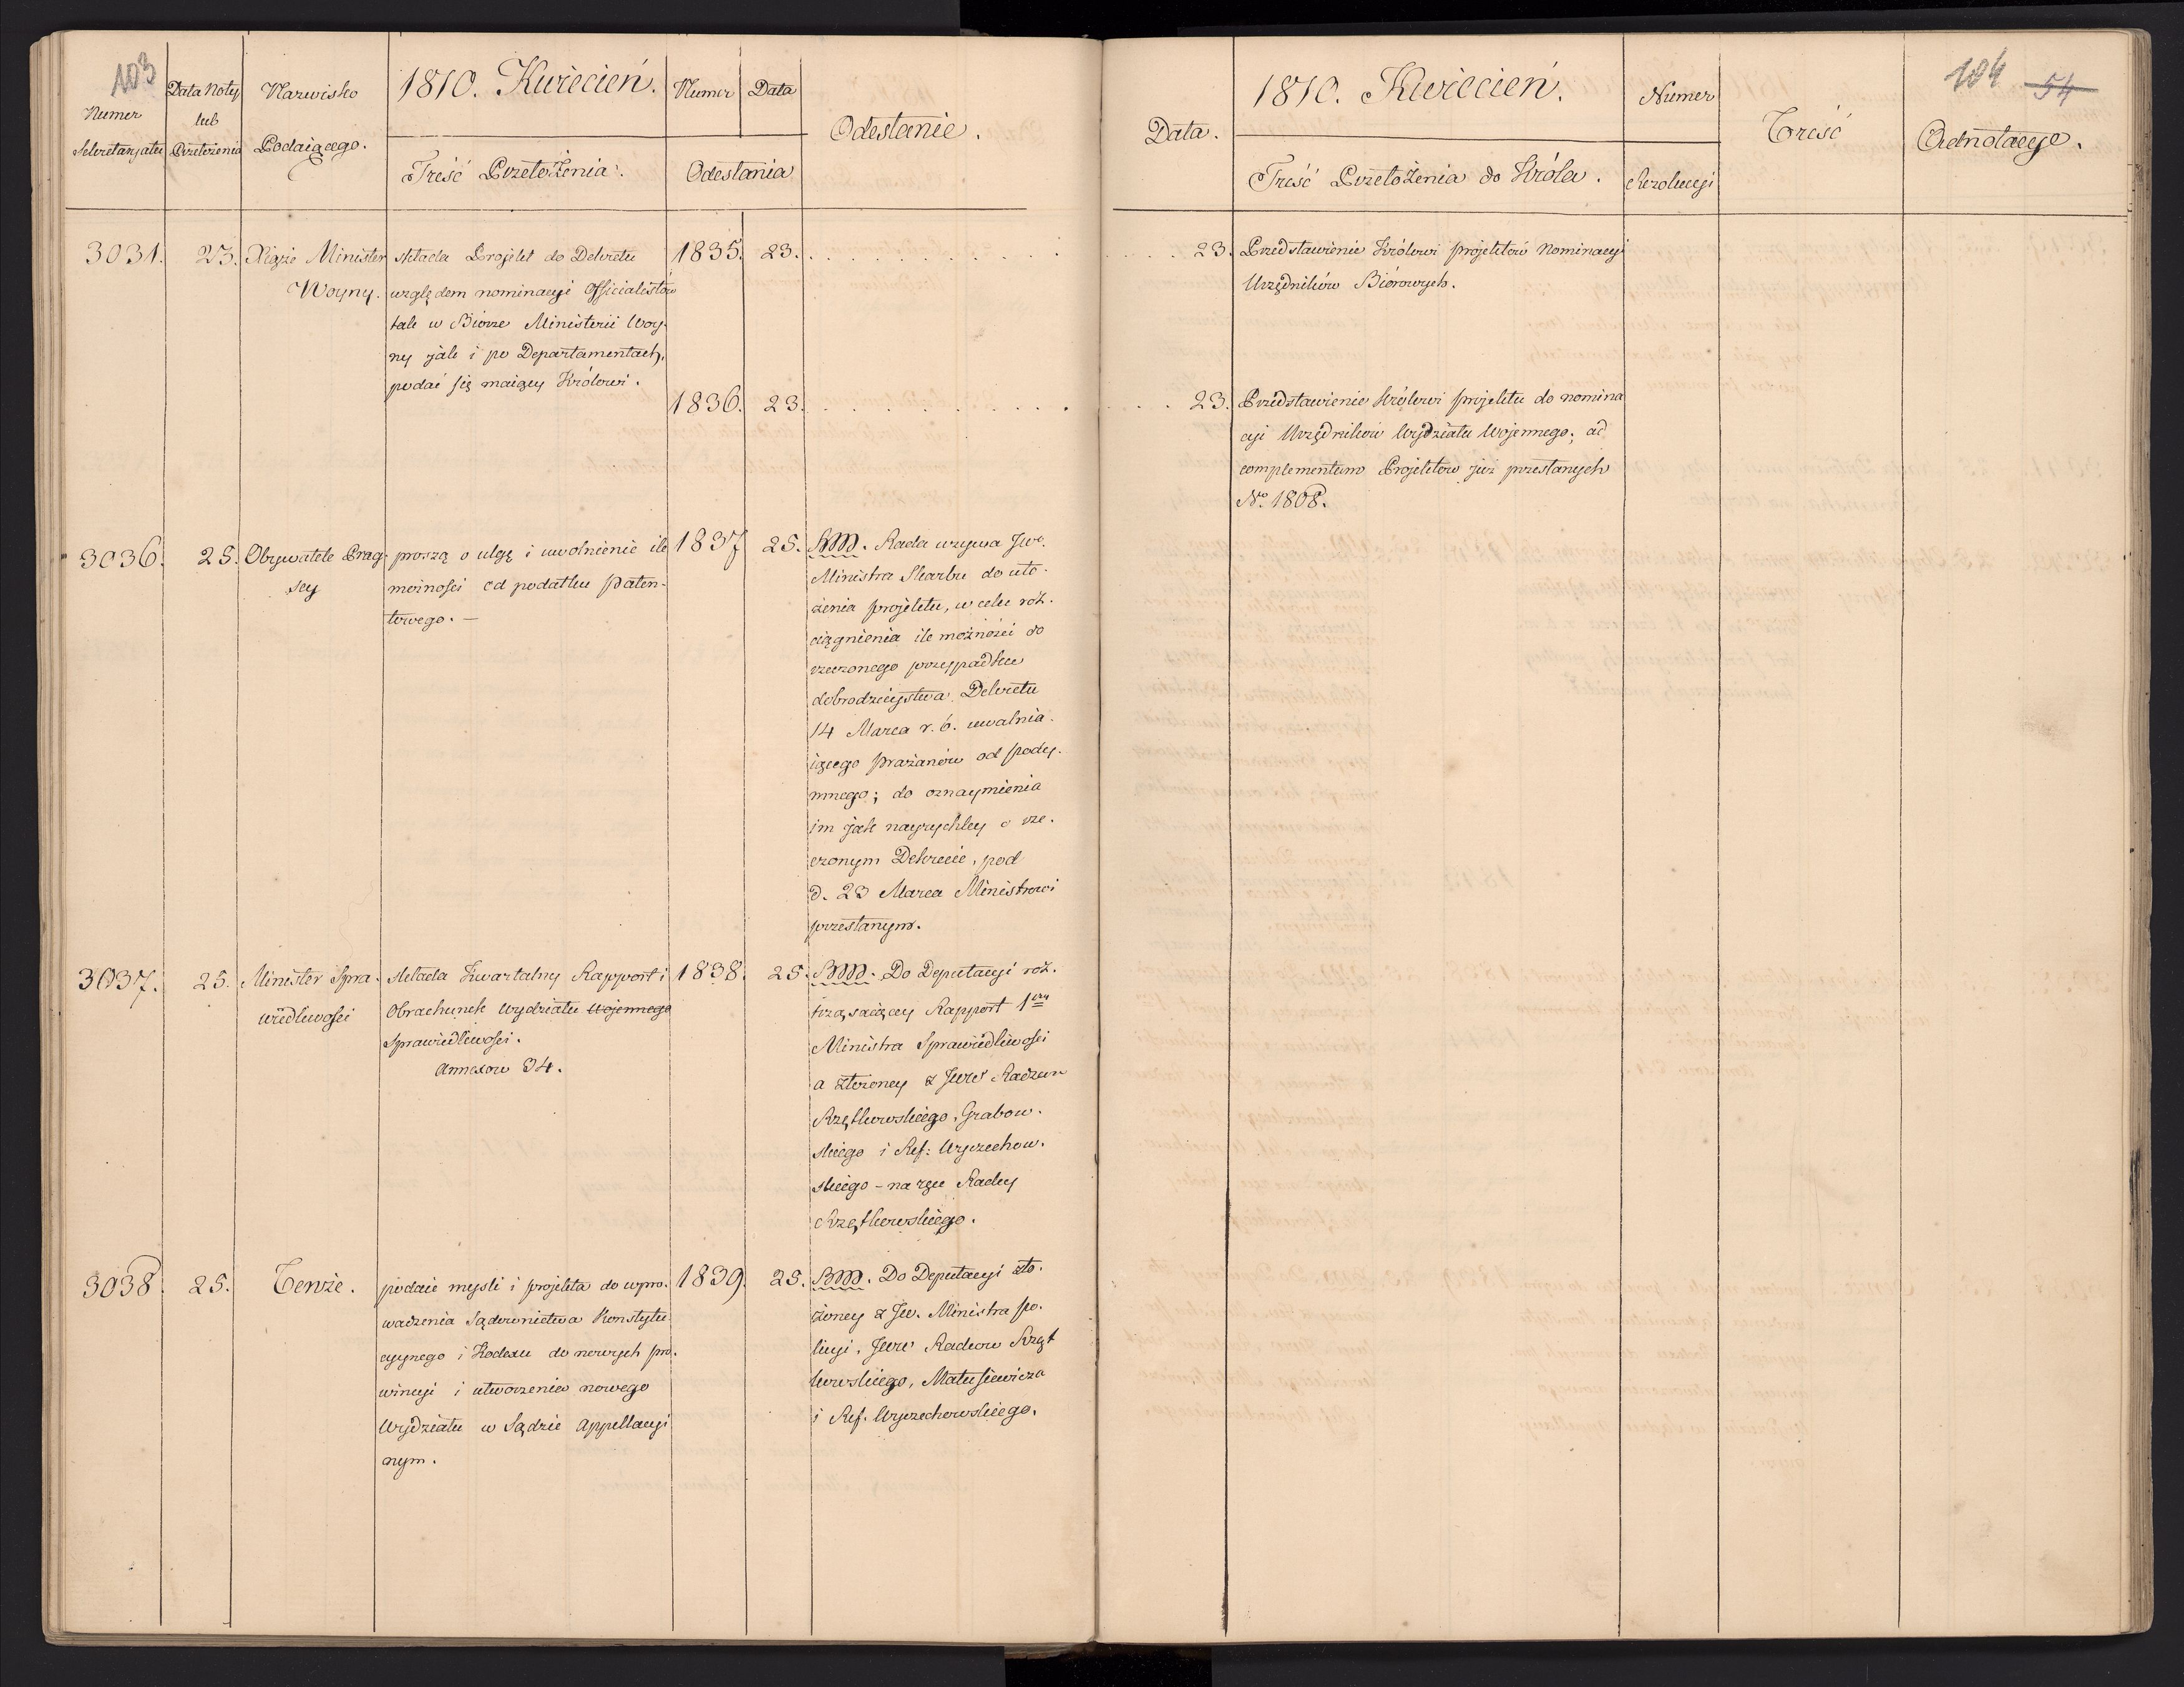 103
Numer
Sekretaryatu
Data Noty
lub
Przełożenia
Nazwisko
Podaiącego.
1810. Kwiecień.
Treść Przełożenia.
Numer Data
Odesłania
Odesłanie.
3031. 23. Xiąże Minister
Woyny.
składa Projekt do Dekretu
względem nominacyi Officialistów
tak w Biorze Ministerii Woy-
ny jak i po Departamentach,
podać się maiący Królowi.
1835. 23.
1836. 23.
3036. 25. Obywatele Prag-
scy
proszą o ulgę i uwolnienie ile
możności od podatku paten-
towego. —
1837 25. BM. Rada wzywa JW.
Ministra Skarbu do uło-
żenia projektu, w celu roz-
ciągnienia ile możności do
rzeczonego przypadku
dobrodzieystwa Dekretu
14 Marca r. b. uwalnia-
iącego prażanów od pody-
mnego; do oznaymienia
im jak nayrychley o rze-
czonym Dekrecie, pod
d. 23 Marca Ministrowi
przesłanym.
3037. 25. Minister Spra-
wiedliwości
składa Kwartalny Rapport i
Obrachunek Wydziału Wojennego
Sprawiedliwości.
Annexow 34.
1838. 25. BM. Do Deputacyi roz-
trząsaiącey Rapport 1szy
Ministra Sprawiedliwości
a złożoney z JWW Radzcow
Rzętkowskiego, Grabow-
skiego i Ref: Wyczechow-
skiego – na ręce Radcy
Rzętkowskiego.
3038. 25. Tenże.
podaie mysli i projekta do wpro-
wadzenia Sądownictwa Konstytu
cyynego i Kodexu do nowych pro-
wincyi i utworzenia nowego
Wydziału w Sądzie Appellacyi
nym.
1839. 25. BM. Do Deputacyi zło-
żoney z JW. Ministra po-
licyi, JWW Radcow Rzęt
kowskiego, Matusiewicza
i Ref. Wyczechowskiego.
104 54
Data.
1810. Kwiecień.
Treść Przełożenia do Króla.
Numer
Rezolucyi
Treść
Adnotacye.
23. Przedstawienie Królowi projektów Nominacyi
Urzędników Biórowych.
23. Przedstawienie Królowi projektu do nomina
cyi Urzędników Wydziału Wojennego, ad
complementum Projektów już przesłanych
No. 1808.